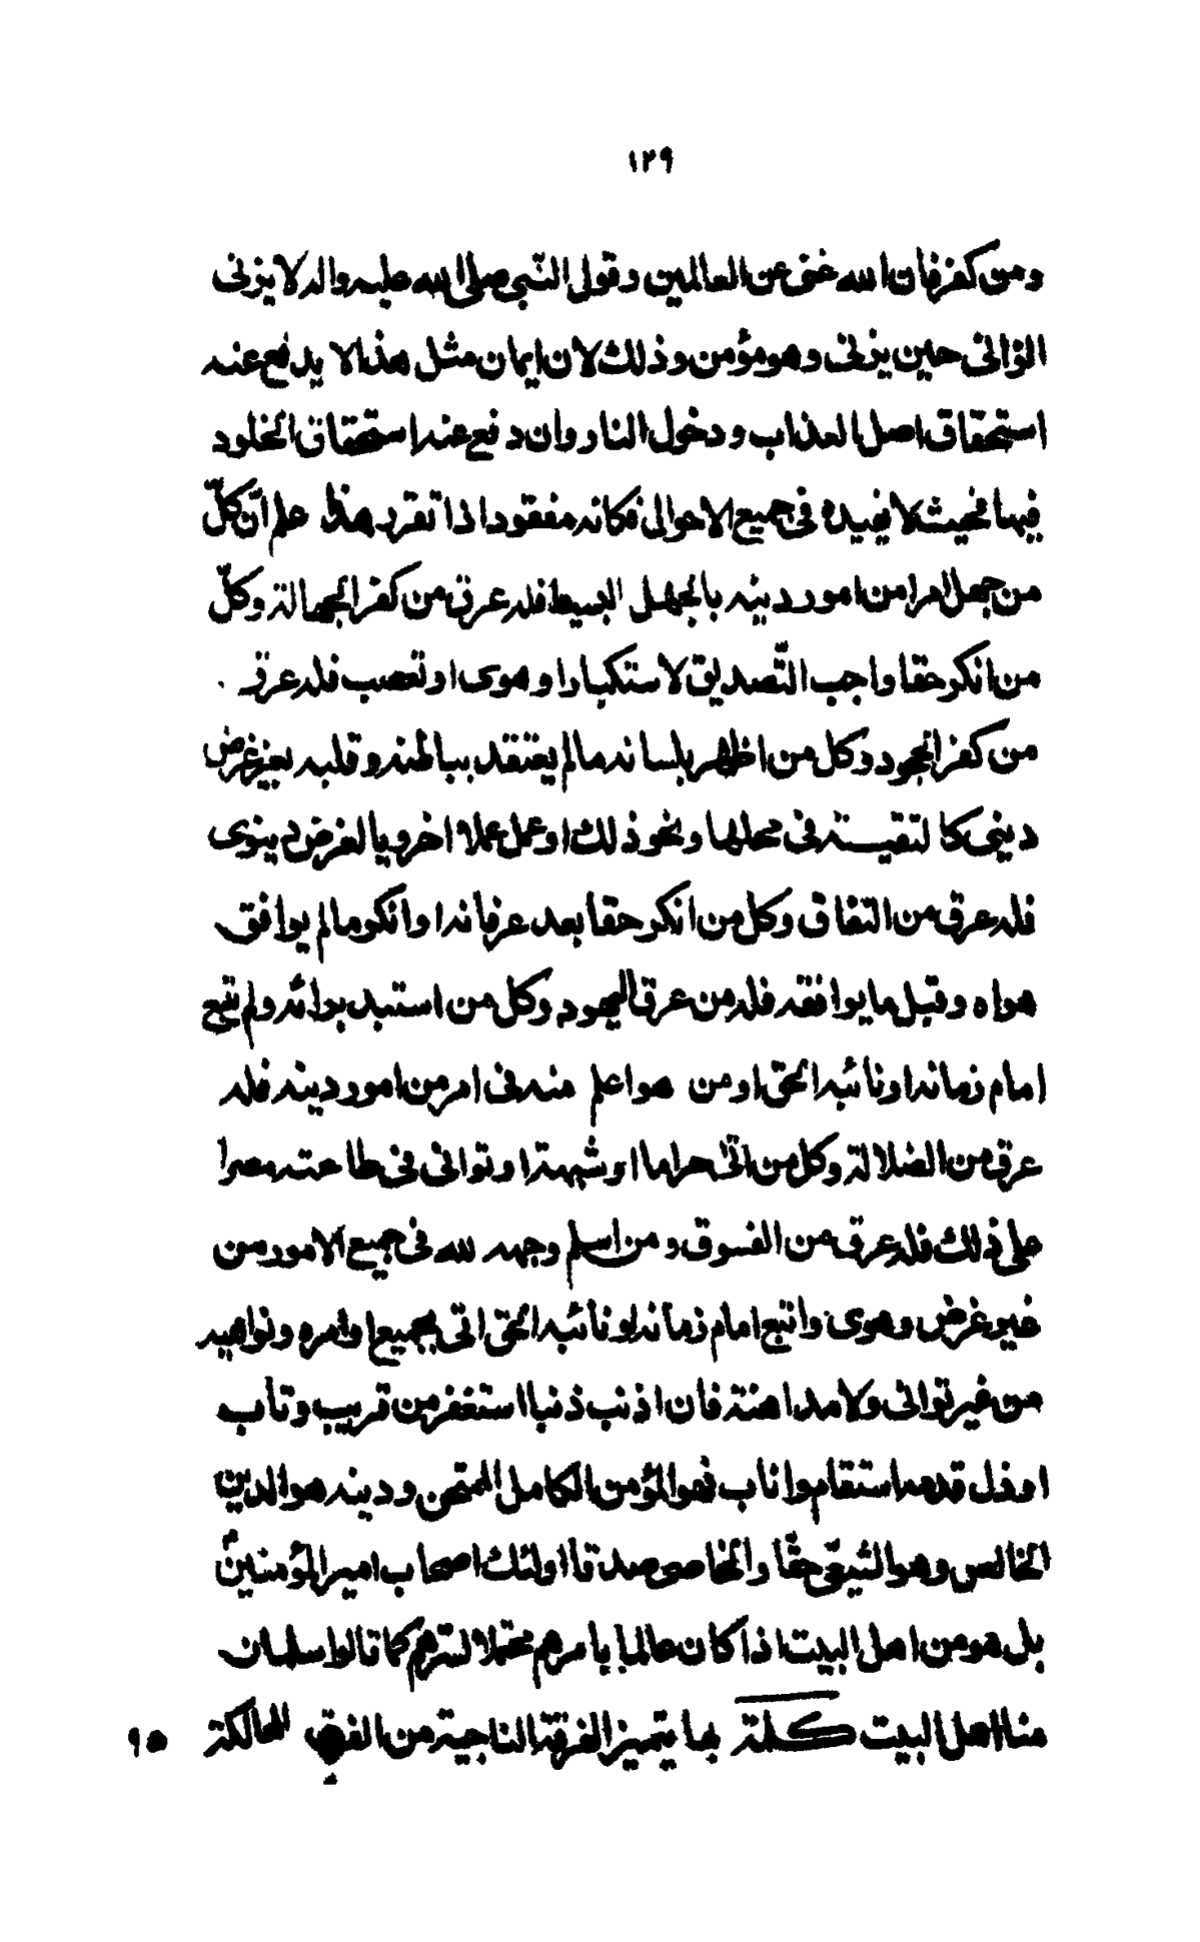 ١٢٩
ومن كفر فان الله غنى عن العالمين وقول النّبى صلى الله عليه واله لا يزنى
الزانى حين يزنى وهو مؤمن وذلك لان ايمان مثل هذا لا يدفع عنه
استحقاق اصل العذاب ودخول النار وان دفع عنه استحقاق الخلود
فيها فحيث لا يفيده فى جميع الاحوال فكانه مفقود اذا تقرر هذا علم انّ كلّ
من جهل امرا من امور دينه بالجهل البسيط فله عرق من كفر الجهالة وكلّ
من انكر حقا واجب التّصديق لاستكبار او هوى او تعصب فله عرق
من كفر الجحود وكل من اظهر بلسانه مالم يعتقد بباطنه وقلبه بغير غرض
دينى كا لتقيـــة فى محلها ونحو ذلك او عمل عملا اخرويا لغرض دينوى
فله عرق من النفاق وكل من انكر حقا بعد عرفانه او انكر مالم يوافق
هواه وقبل ما يوافقه فله من عرق اليهود وكل من استبد برائه ولم يتبع
امام زمانه او نائبه الحق او من هو اعلم منه فى امر من امور دينه فله
عرق من الضلالة وكل من اتى حراما او شبهة او توانى فى طاعته مصرا
على ذلك فله عرق من الفسوق ومن اسلم وجهه لله فى جميع الامور من
غير غرض وهوى واتبع امام زمانه او نائبه الحق اتى بجميع اوامره ونواهيه
من غير توانى ولا مداهنة فان اذنب ذنبا استغفر من قريب وتاب
او زل قدمه استقام واناب فهو المؤمن الكامل الممتحن ودينه هو الدين
الخالص وهو الشيعىّ حقّا والخاصى صدقا اولئك اصحاب امير المؤمنينؑ
بل هو من اهل البيت اذا كان عالما بامرهم محتملا لسترهم كما قالوا سلمان
منا اهل البيت كـلمة بها يتميز الفرقة الناجية من الفرق الهالكة ٩٥